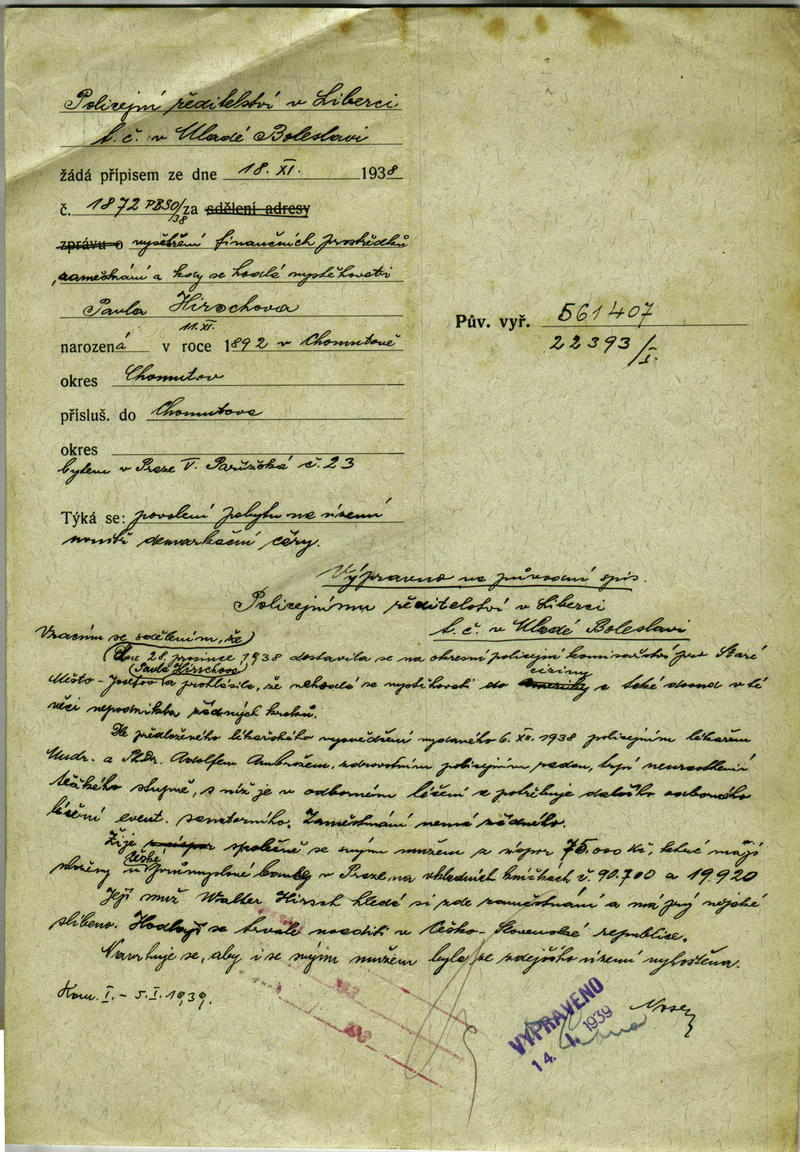 Policejní ředitelství v Liberci
t. č. v Mladé Boleslavi
žádá přípisem ze dne 18. XI. 1938
č. 1872 PBSO/38 za sdělení adresy
zprávu o vyšetření finančních prostředků
zaměstnání a kdy se hodlá vystěhovati
Pavla Hirschova
11. XI.
narozená v roce 1892 v Chomutově
okres Chomutov
přísluš. do Chomutova
okres
bytem v Praze V. Pařížská č. 23
Týká se: povolení pobytu na území
uvnitř demarkační čáry.
Pův. vyř. 561407
22393/I.
Výpravno na původní spis.
Policejnímu ředitelství v Liberci
t. č. v Mladé Boleslavi
Vracím se sdělením, že
Dne 28. prosince 1938 dostavila se na okresní policejní komisařství pro Staré
Pavla Hirschová
ciziny
Město - Josefov a prohlásila, že nehodlá se vystěhovati do Ameriky a také dosud v té
věci nepodnikla žádných kroků.
Dle předloženého lékařského vysvědčení vydaného 6. XII. 1938 policejním lékařem
Mudr. a Phdr. Adolfem Ambrožem, zdravotním policejním radou, trpí neurasthenií
těžkého stupně, s níž je v odborném léčení a potřebuje dalšího odborného
léčení event. sanatorního. Zaměstnání nemá žádného.
Žije společně se svým mužem z úspor 75.000 Kč, které mají
uloženy u České průmyslové banky v Praze na vkladních knížkách č. 90.700 a 19.920
Její muž Walter Hirsch hledá si zde zaměstnání a má prý nějaké
slíbeno. Hodlají se trvale usaditi v Česko-Slovenské republice.
Navrhuje se, aby i se svým mužem byla ze zdejšího území vyhoštěna.
Kom. I. - 5. I. 1939.
VYPRAVENO
14. I. 1939